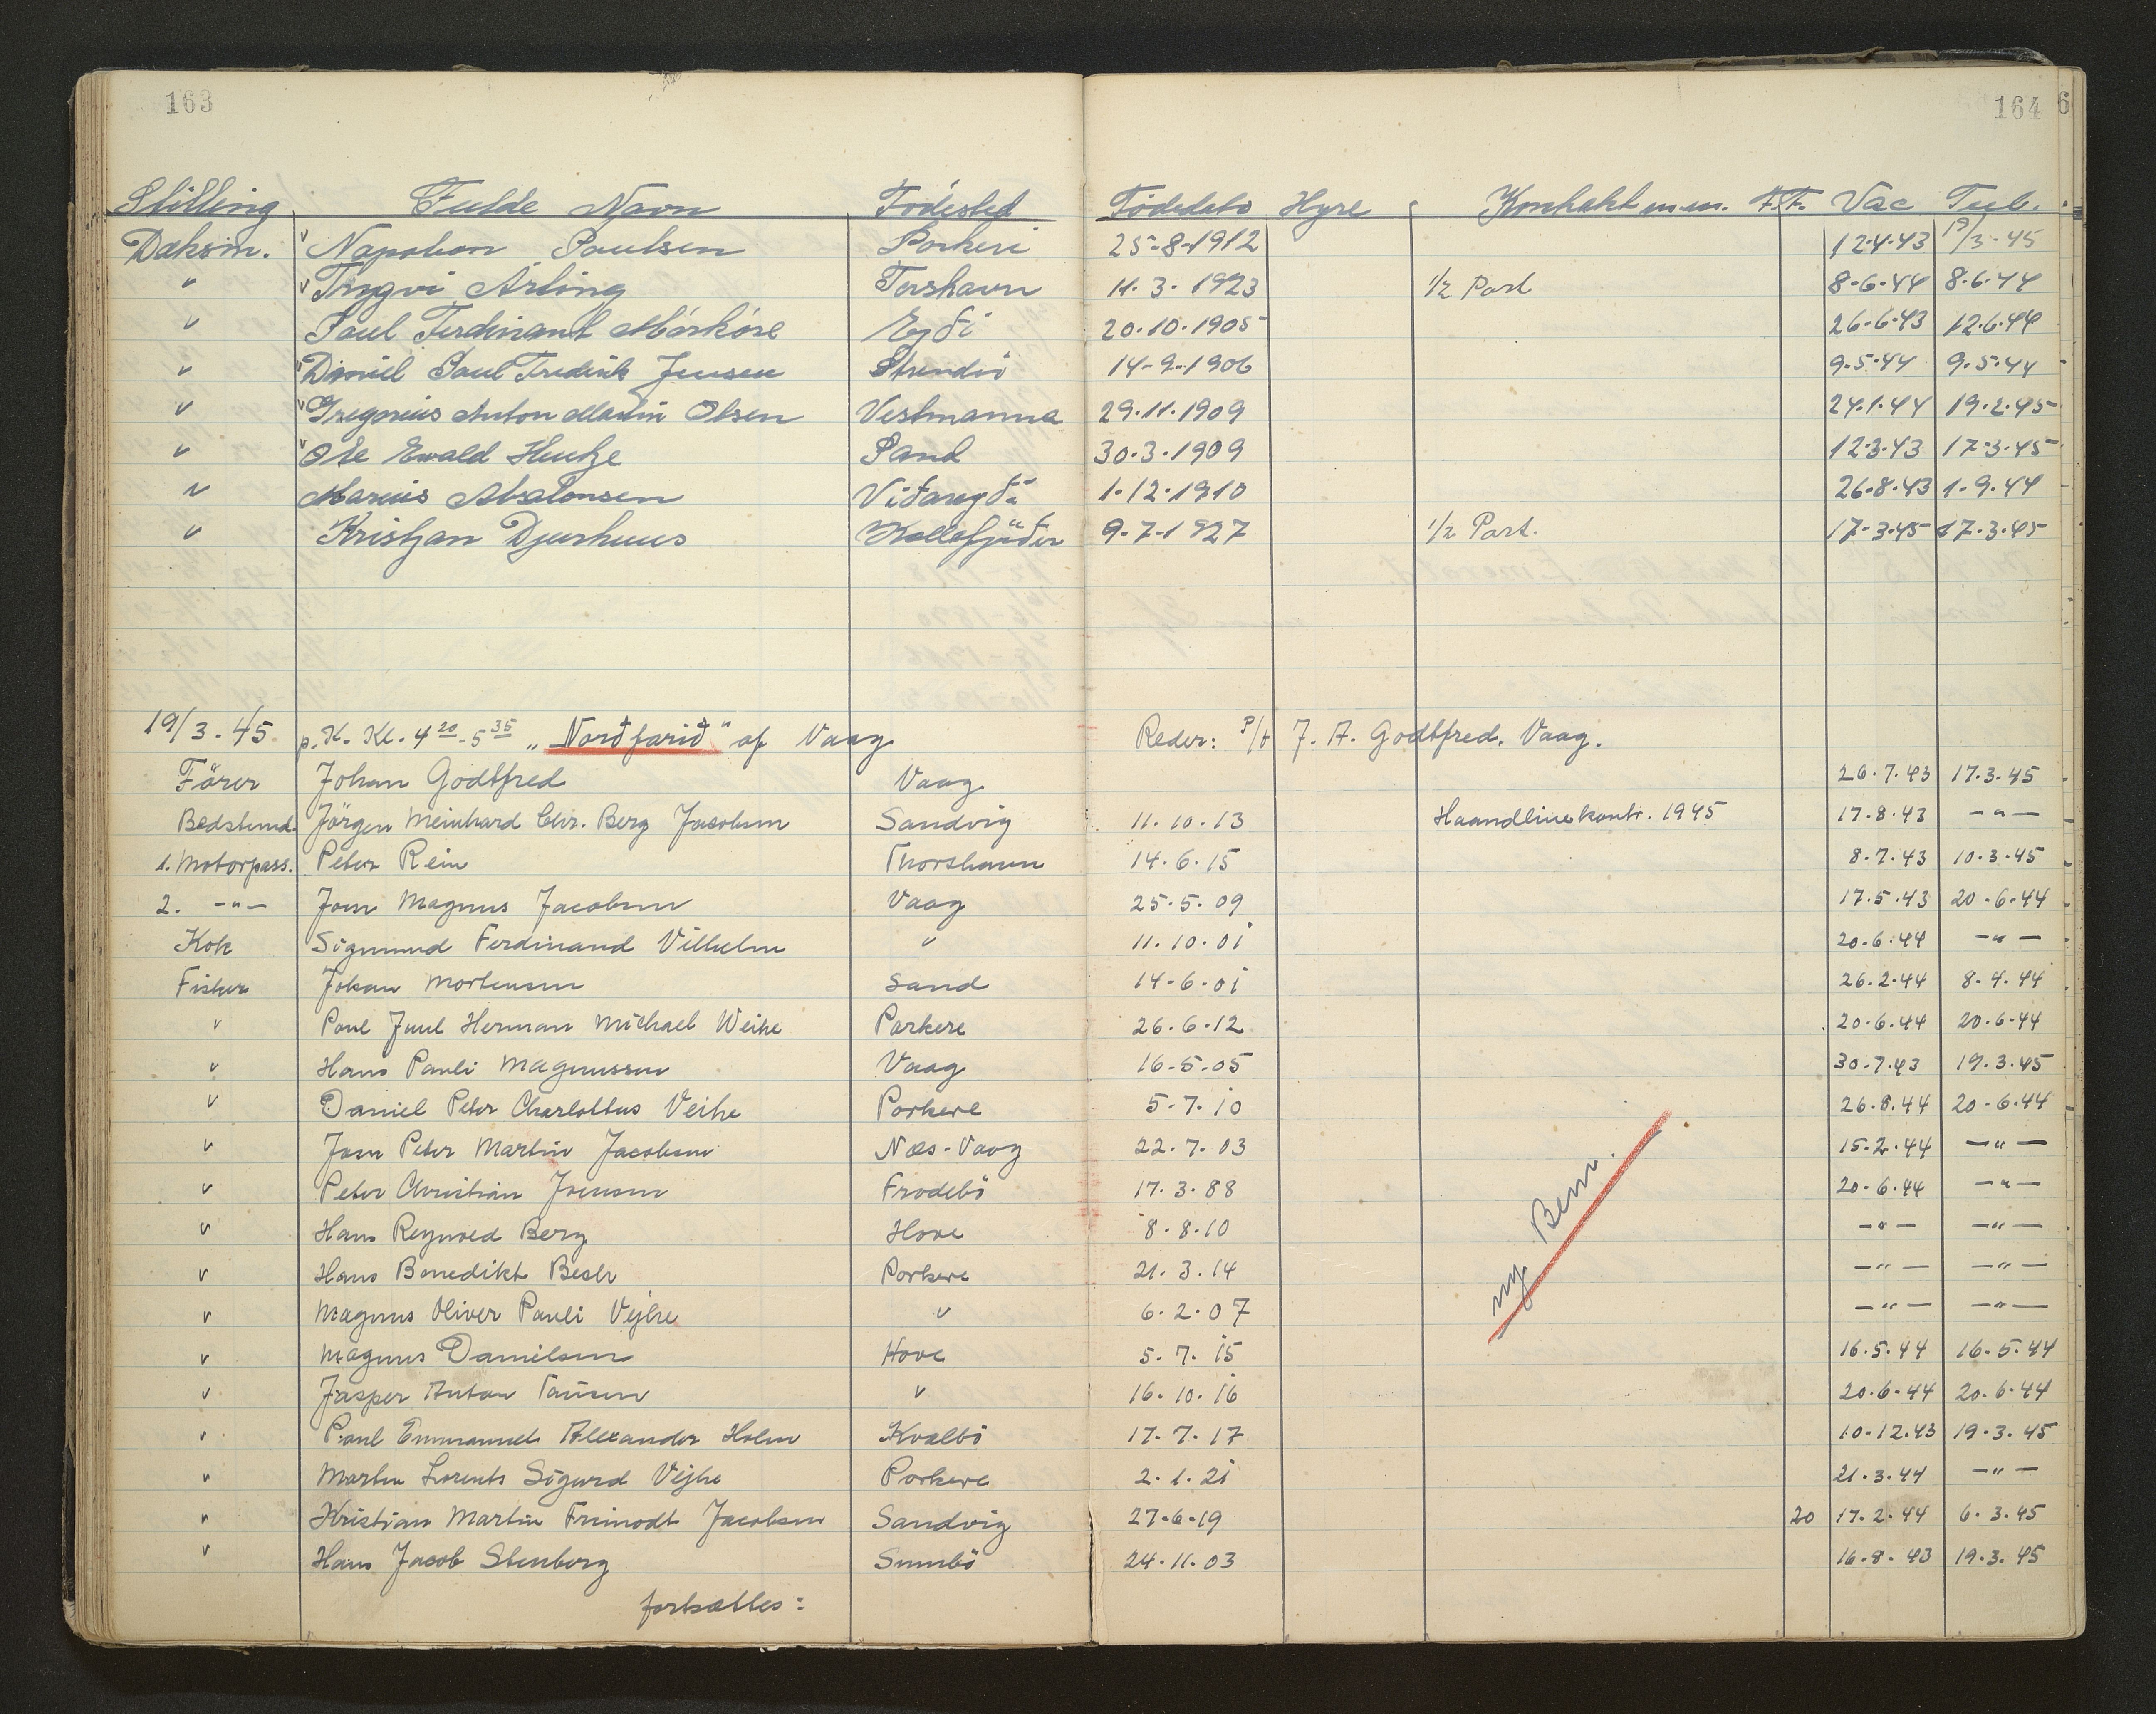 163
164
6
Stilling Fulde Navn Födested Födedato Hyre Kontrakt m.m. F.F. Vac Tub.
Daksm. v Napoleon Poulsen Porkeri 25-8-1912 12.4.43 19/3-45
" v Trygvi Arting Torshavn 11.3.1923 1/2 Part 8-6-44 8.6.44
" Poul Ferdinant Mörköre Ejði 20.10.1905 26-6-43 12.6.44
" Daniel Poul Fredrik Jensen Strendur 14-9-1906 9.5.44 9.5.44
" v Gregorius Anton Martin Olsen Vestmanna 29.11.1909 24.1.44 19.2.45
" v Ole Ewald Hentze Sand 30.3.1909 12.3.43 17.3.45
" Marius Absalonsen Viðareyði 1.12.1910 26.8.43 1.9.44
" Kristjan Djurhuus Kollefjörður 9-7-1927 1/2 Part. 17-3.45 17.3.45
19/3.45 p.K. Kl. 4 20 - 5 35 „Norðfarið" af Vaag Reder: P/f J. A. Godtfred. Vaag.
Förer Johan Godtfred Vaag 26.7.43 17.3.45
Bedstemd. Jörgen Meinhard Chr. Berg Jacobsen Sandvig 11.10.13 Haandlinekontr. 1945 17.8.43 -"-
1. Motorpass. Peter Rein Thorshavn 14.6.15 8.7.43 10.3.45
2. -"- Joen Magnus Jacobsen Vaag 25.5.09 17.5.43 20-6-44
Kok Sigmund Ferdinand Vilhelm " 11.10.01 20-6.44 -"-
Fisker Johan Mortensen Sand 14-6-01 26.2.44 8.4.44
" Poul Juul Herman Michael Weihe Porkere 26.6.12 20-6.44 20-6-44
" Hans Pauli Magnussen Vaag 16-5-05 30-7.43 19.3.45
" Daniel Peter Charlottus Veihe Porkere 5.7.10 26.8.44 20-6.44
" Joen Peter Martin Jacobsen Næs-Vaag 22.7.03 15.2.44 -"-
" Peter Christian Joensen Frodebö 17.3.88 20-6.44 -"-
" Hans Reynold Berg Hove 8.8.10 -"- -"-
" Hans Benedikt Bech Porkere 21.3.14 -"- -"-
" Magnus Oliver Pauli Vejhe " 6.2.07 -"- -"-
ny Bem.
" Magnus Danielsen Hove 5.7.15 16.5.44 16-5.44
" Jasper Anton Tausen " 16.10.16 20.6-44 20.6-44
" Paul Emmanuel Alexander Holm Kvalbö 17-7.17 10-12.43 19.3.45
" Martin Lorents Sigurd Vejhe Porkere 2.1.21 21.3.44 -"-
" Kristian Martin Frimodt Jacobsen Sandvig 27-6-19 20 17.2.44 6.3.45
" Hans Jacob Stenberg Sumbö 24.11.03 16-8-43 19.3.45
fortsættes: